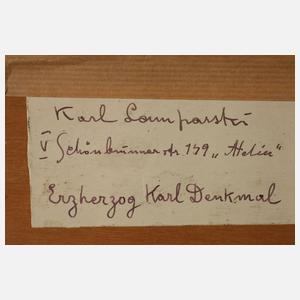 Karl Lamparski
V Schönbrunnerstr. 139 „Atelier“
Erzherzog Karl Denkmal